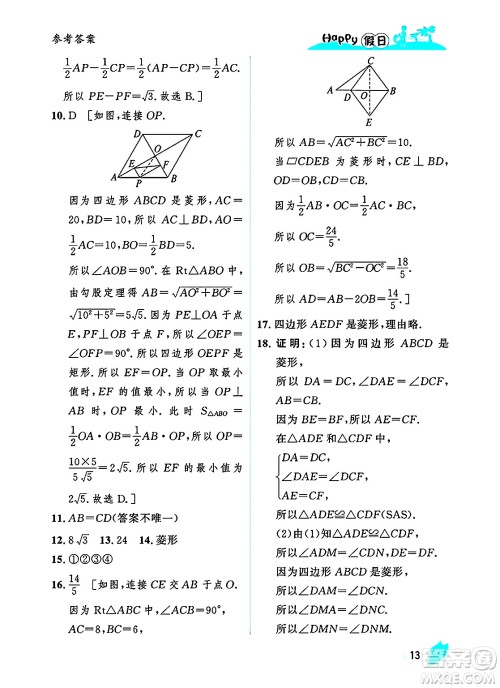 参考答案
Happy 假日
1/2AP－1/2CP＝1/2(AP－CP)＝1/2AC.
所以 PE－PF＝√3. 故选 B.]
10. D [如图,连接 OP.
D C
E O F
A P B
因为四边形 ABCD 是菱形, AC＝
20, BD＝10, 所以 AC⊥BD, AO＝
1/2AC＝10, BO＝1/2BD＝5.
所以∠AOB＝90°. 在 Rt△AOB 中,
由勾股定理得 AB＝√(AO²＋BO²)＝
√(10²＋5²)＝5√5. 因为 PE⊥OA 于点
E, PF⊥OB 于点 F, 所以∠OEP＝
∠OFP＝90°. 所以四边形 OEPF 是
矩形. 所以 EF＝OP. 当 OP 取最小
值时, EF 的值最小, 所以当 OP⊥
AB 时, OP 最小. 此时 S△ABO＝
1/2OA·OB＝1/2AB·OP, 所以 OP＝
(10×5)/(5√5)＝2√5. 所以 EF 的最小值为
2√5. 故选 D.]
11. AB＝CD(答案不唯一)
12. 8√3 13. 24 14. 菱形
15. ①③④
16. 14/5 [如图,连接 CE 交 AB 于点 O.
因为 Rt△ABC 中, ∠ACB＝90°,
AC＝8, BC＝6,
C
A D O B
E
所以 AB＝√(AC²＋BC²)＝10.
当 ▱CDEB 为菱形时, CE⊥BD,
OD＝OB, CD＝CB.
因为1/2AB·OC＝1/2AC·BC,
所以 OC＝24/5.
所以 OB＝√(BC²－OC²)＝18/5.
所以 AD＝AB－2OB＝14/5.]
17. 四边形 AEDF 是菱形,理由略.
18. 证明:(1)因为四边形 ABCD 是
菱形,
所以 DA＝DC＝AB＝BC.
因为 BE＝BF, 所以 AE＝CF.
在△ADE 和△CDF 中,
DA＝DC,
∠DAE＝∠DCF,
AE＝CF,
所以△ADE≌△CDF(SAS).
(2)由(1)可知△ADE≌△CDF,
所以∠ADE＝∠CDF.
因为四边形 ABCD 是菱形,
所以 AB∥CD, AD∥BC.
所以∠ADE＝∠DEC, ∠CDF＝
∠DFA.
所以∠DEC＝∠DFA.
13